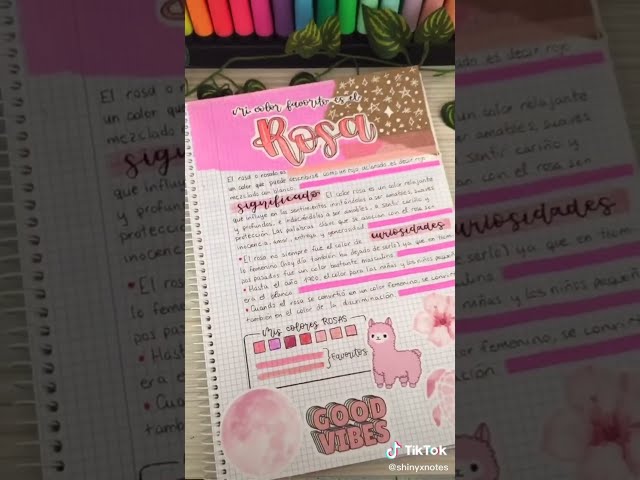 mi color favorito es el
Rosa
El rosa o rosado es
un color que puede describirse como es decir rojo
mezclado con blanco.
significado El color rosa es un color relajante
que influye en los sentimientos invitándolos a ser amables, suaves
y profundos, e induciéndolos a ser amables, a sentir cariño y
protección. Las palabras claves que se asocian con el rosa son
inocencia, amor, entrega y generosidad. curiosidades
• El rosa no siempre fue el color de
lo femenino (hoy día también ha dejado de serlo) ya que en tiem
pos pasados fue un color bastante masculino
• Hasta el año 1920, el color para las niñas y los niños pequeñ
era el blanco
• Cuando el rosa se convirtió en un color femenino, se convirtió
también en el color de la discriminación.
mis colores ROSAS
Favoritos
GOOD
VIBES
TikTok
@shinyxnotes